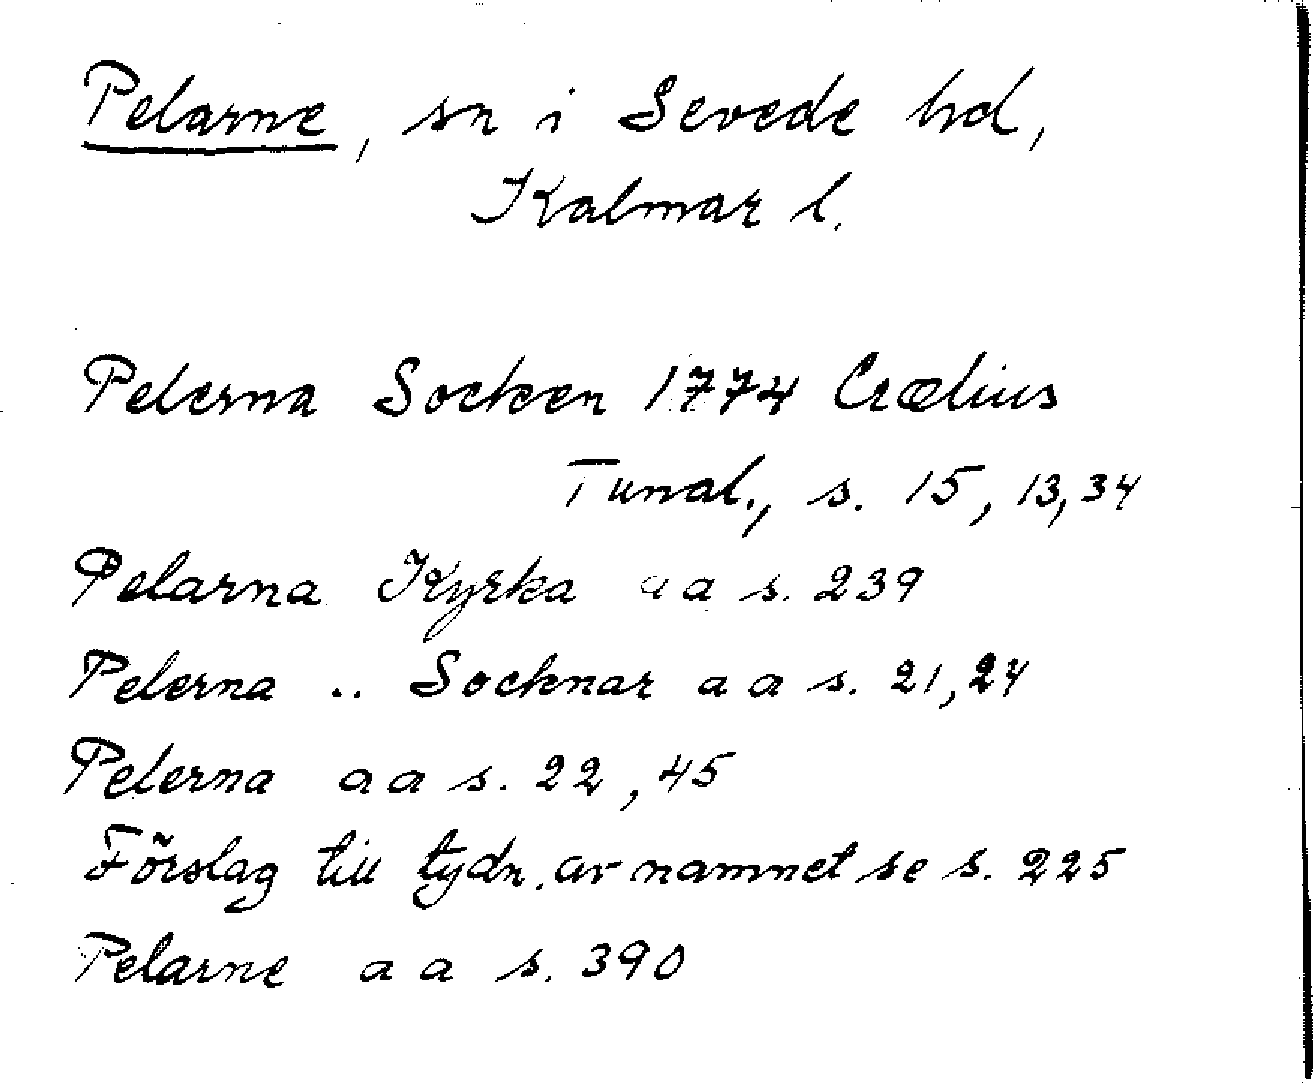 Pelarne, sn i Sevede hd,
Kalmar l.
Pelerna Socken 1774 Crælius
Tunal., s. 15, 13, 34
Pelarna Kyrka aa s. 239
Pelerna .. Socknar aa s. 21, 24
Pelerna aa s. 22, 45
Förslag till tydn. av namnet se s. 225
Pelarne aa s. 390